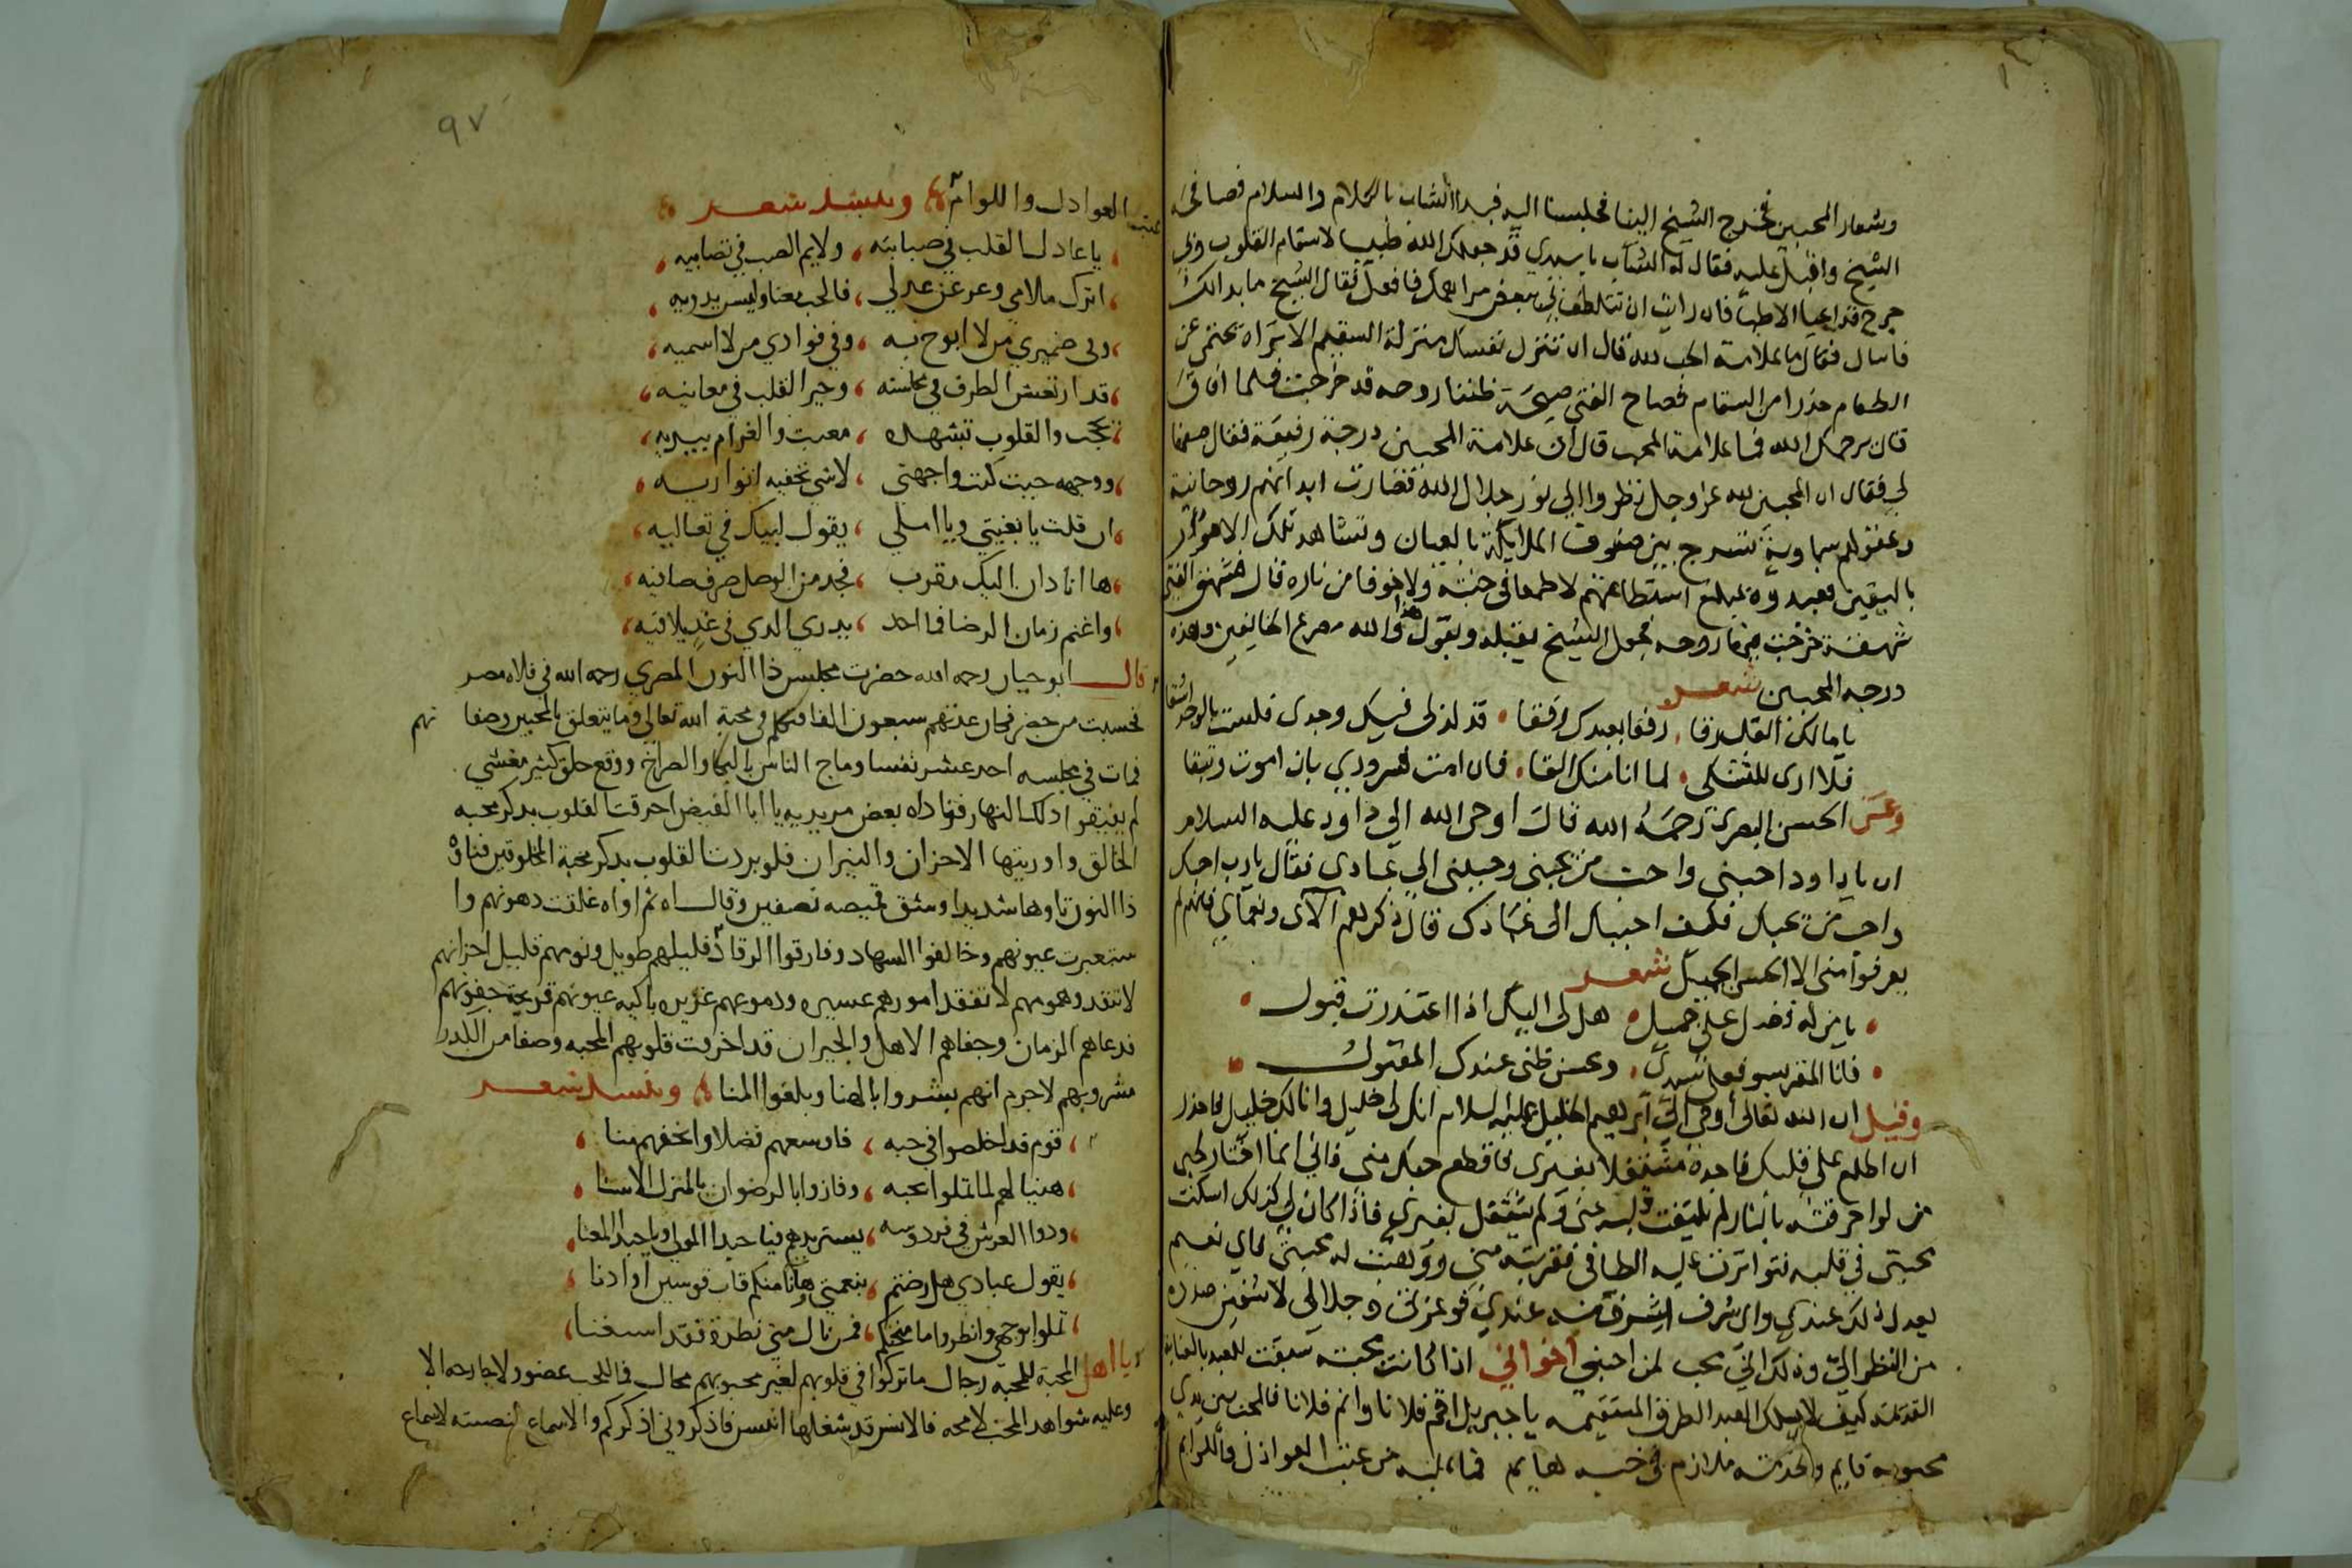 وشعار المحبين فخرج الشيخ الينا فجلسنا اليه فبدا الشاب بالكلام والسلام فصافحه
الشيخ واقبل عليه فقال له الشاب يا سيدي قد جعلك الله طبيبا لاسقام القلوب ولي
جرح قد اعيا الاطبا فان رايت ان تتلطف بي ببعض مراهمك فافعل فقال الشيخ ما بدا لك
فاسال فقال ما علامة الحب لله قال ان تنزل نفسك منزلة السقيم الا تراه يحتمي عن
الطعام حذرا من السقام فصاح الفتى صيحة ظننا روحه قد خرجت فلما افاق
قال يرحمك الله فما علامة المحب قال ان علامة المحبين درجة رفيعة فقال صفها
لي فقال ان المحبين لله عز وجل نظروا الي نور جلال الله فصارت ابدانهم روحانية
وعقولهم سماوية تسرح بين صفوف الملايكة بالعيان وتشاهد تلك الامور
باليقين فعبدوه بمبلغ استطاعتهم لا طمعا في جنته ولا خوفا من ناره قال فشهق الفتى
شهقة خرجت فيها روحه فجعل الشيخ يقبله ويقول هذا والله مصرع الخايفين وهذه
درجه المحبين شعر
يا مالك القلب رفقا رفقا بعبدك رفقا قد لذ لي فيك وجدي فلست بالوجد اشقا
فلا ارى للمشتكى لما انا منك القا فان امت فسروري بان اموت رقيقا
وعن الحسن البصري رحمه الله قال اوحى الله الي داود عليه السلام
ان يا داود احبني واحب من يحبني وحببني الي عبادي فقال يا رب احبك
واحب من يحبك فكيف احببك الى عبادك قال ذكرهم آلاى ونعماي فانهم لم
يعرفوا مني الا الحسن الجميل شعر
يا من له فضل علي جميل هل لي اليك اذا اعتذرت قبول
فانا المقر بسو فعلي سيدي وبحسن ظني عندك المقبول
وقيل ان الله تعالى أوحى الى ابرهيم الخليل عليه السلام انك لي خليل وانا لك خليل فاحذر
ان اطلع على قلبك فاجده مشتغلا بغيرى فاقطع حبك مني فاني انما اختار لحبي
من لو احرقته بالنار لم يلتفت قلبه عني ولم يشتغل بغيري فاذا كان لي كذلك اسكنت
محبتي في قلبه فتواترت عليه الطافي فقربته مني ووهبت له محبتي فاي نعيم
يعدل ذلك عندي واى شرف اشرف منه عندي فوعزتي وجلالي لاشفين صدره
من النظر اليّ وذلك اني محب لمن احبني اخواني اذا كانت محبته سبقت للعبد بالعناية
القديمة كيف لا يسلك العبد الطرق المستقيمه يا جبريل اقم فلانا وانم فلانا فالمحب بين يدي
محبوبه قايم ولخدمته ملازم في حبه هايم فما عليه من عتب العواذل واللوايم
٩٧
عتب العوادل واللوام وينشد شعر
يا عادل القلب في صبابته ولايم الصب في تصابيه
اترك ملامي وعد عن عدلي فالحب معنا وليس يدريه
وفي ضميري من لا ابوح به وفي فوادي من لا اسميه
قد ارتعش الطرف في محاسنه وحير القلب في معانيه
تحجب والقلوب تشهده مغيب والغرام يبديه
ووجهه حيث كنت واجهني لاشي تخفيه انواريه
ان قلت يا بغيتي ويا املي يقول لبيك في تعاليه
ها انا دان اليك مقرب فخد من الوصل صرف صافيه
واغنم زمان الرضا فما احد يدري الدي في غد يلاقيه
قال ابو حيان رحمه الله حضرت مجلس ذا النون المصري رحمه الله في فلاه مصر
فحسبت من حضر فكان عدتهم سبعون الفا فتكلم في محبة الله تعالى وما يتعلق بالمحبين وصفا تهم
فمات في مجلسه احد عشر نفسا وماج الناس بالبكا والصراخ ووقع خلق كثير مغشي
لم يفيقوا ذلك النهار فناداه بعض مريديه يا ابا الفيض احرقت القلوب بدكر محبه
الخالق واورثتها الاحزان والنيران فلو بردت القلوب بدكر محبة المخلوقين فتاوه
ذا النون تاوها شديدا وشق قميصه نصفين وقال اه ثم اواه غلقت رهونهم وا
ستعبرت عيونهم وخالفوا السهاد وفارقوا الرقاد فليلهم طويل ونومهم قليل احزانهم
لا تنفد وهمومهم لا تفقد امورهم عسيره ودموعهم غزيره باكيه عيونهم قريحة جفونهم
قد عاهم الزمان وجفاهم الاهل والجيران قد اخربت قلوبهم المحبه وصفا من الكدر
مشروبهم لا جرم انهم بشروا بالهنا وبلغوا المنا وينشد شعر
قوم قد اخلصوا في حبه فاوسعهم فضلا واتحفهم منا
هنيا لهم لما تملوا بحبه وفازوا بالرضوان بالمنزل الاسنا
ودوا العرش في فردوسه يستزيدهم فيا حبدا المولى ويا حبدا المعنا
يقول عبادي هل رضيتم بنعمتي وها انا منكم قاب قوسين او ادنا
تملوا بوجهي وانظروا ما منحتكم فمن نال مني نظرة فقد استغنا
يا اهل المحبة للمحبه رجال ما تركوا في قلوبهم لغير محبوبهم مجال فما للحب عضو ولا جارحه الا
وعليه شواهد المحب لامحه فالالسن قد شغلها انس فاذكروني اذكركم والاسماع نصيبه لاسماع